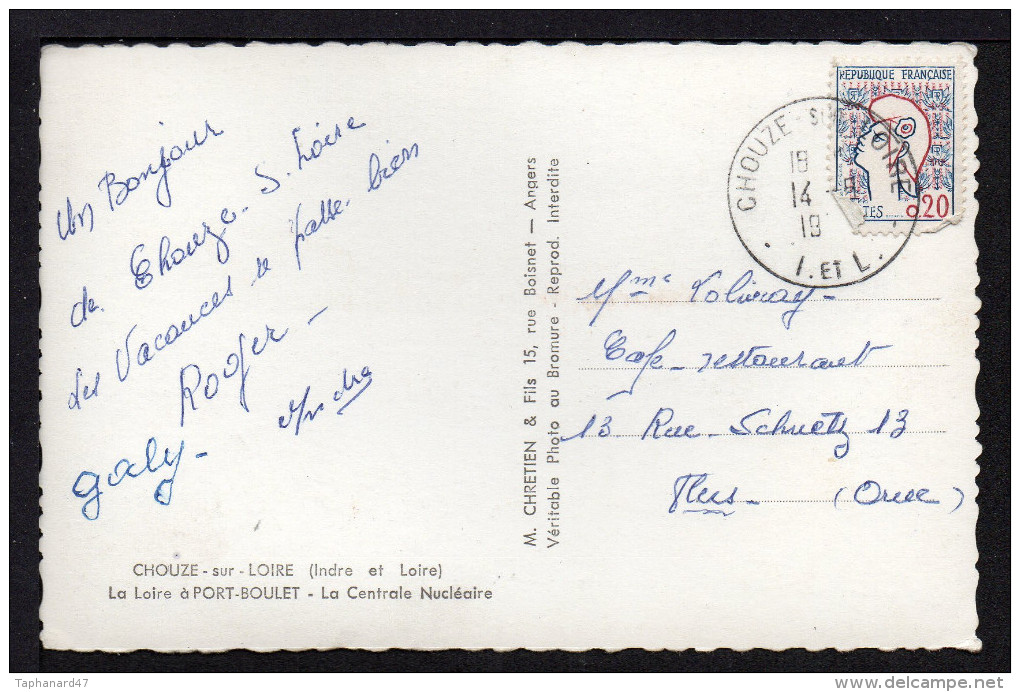 Un Bonjour
de Chouze. S. Loire
Les Vacances se passe. bien
Roger -
Andre
galy -
CHOUZE - sur - LOIRE (Indre et Loire)
La Loire à PORT-BOULET - La Centrale Nucléaire
M. CHRETIEN & Fils 15, rue Boisnet — Angers
Véritable Photo au Bromure - Reprod. Interdite
REPUBLIQUE FRANÇAISE
0,20
CHOUZE - SUR - LOIRE
18
14 - 8
19
I. ET L.
Mme
Cafe - restaurant
13 Rue - Schnetz 13
Flers - (Orne)
Taphanard47
www.delcampe.net